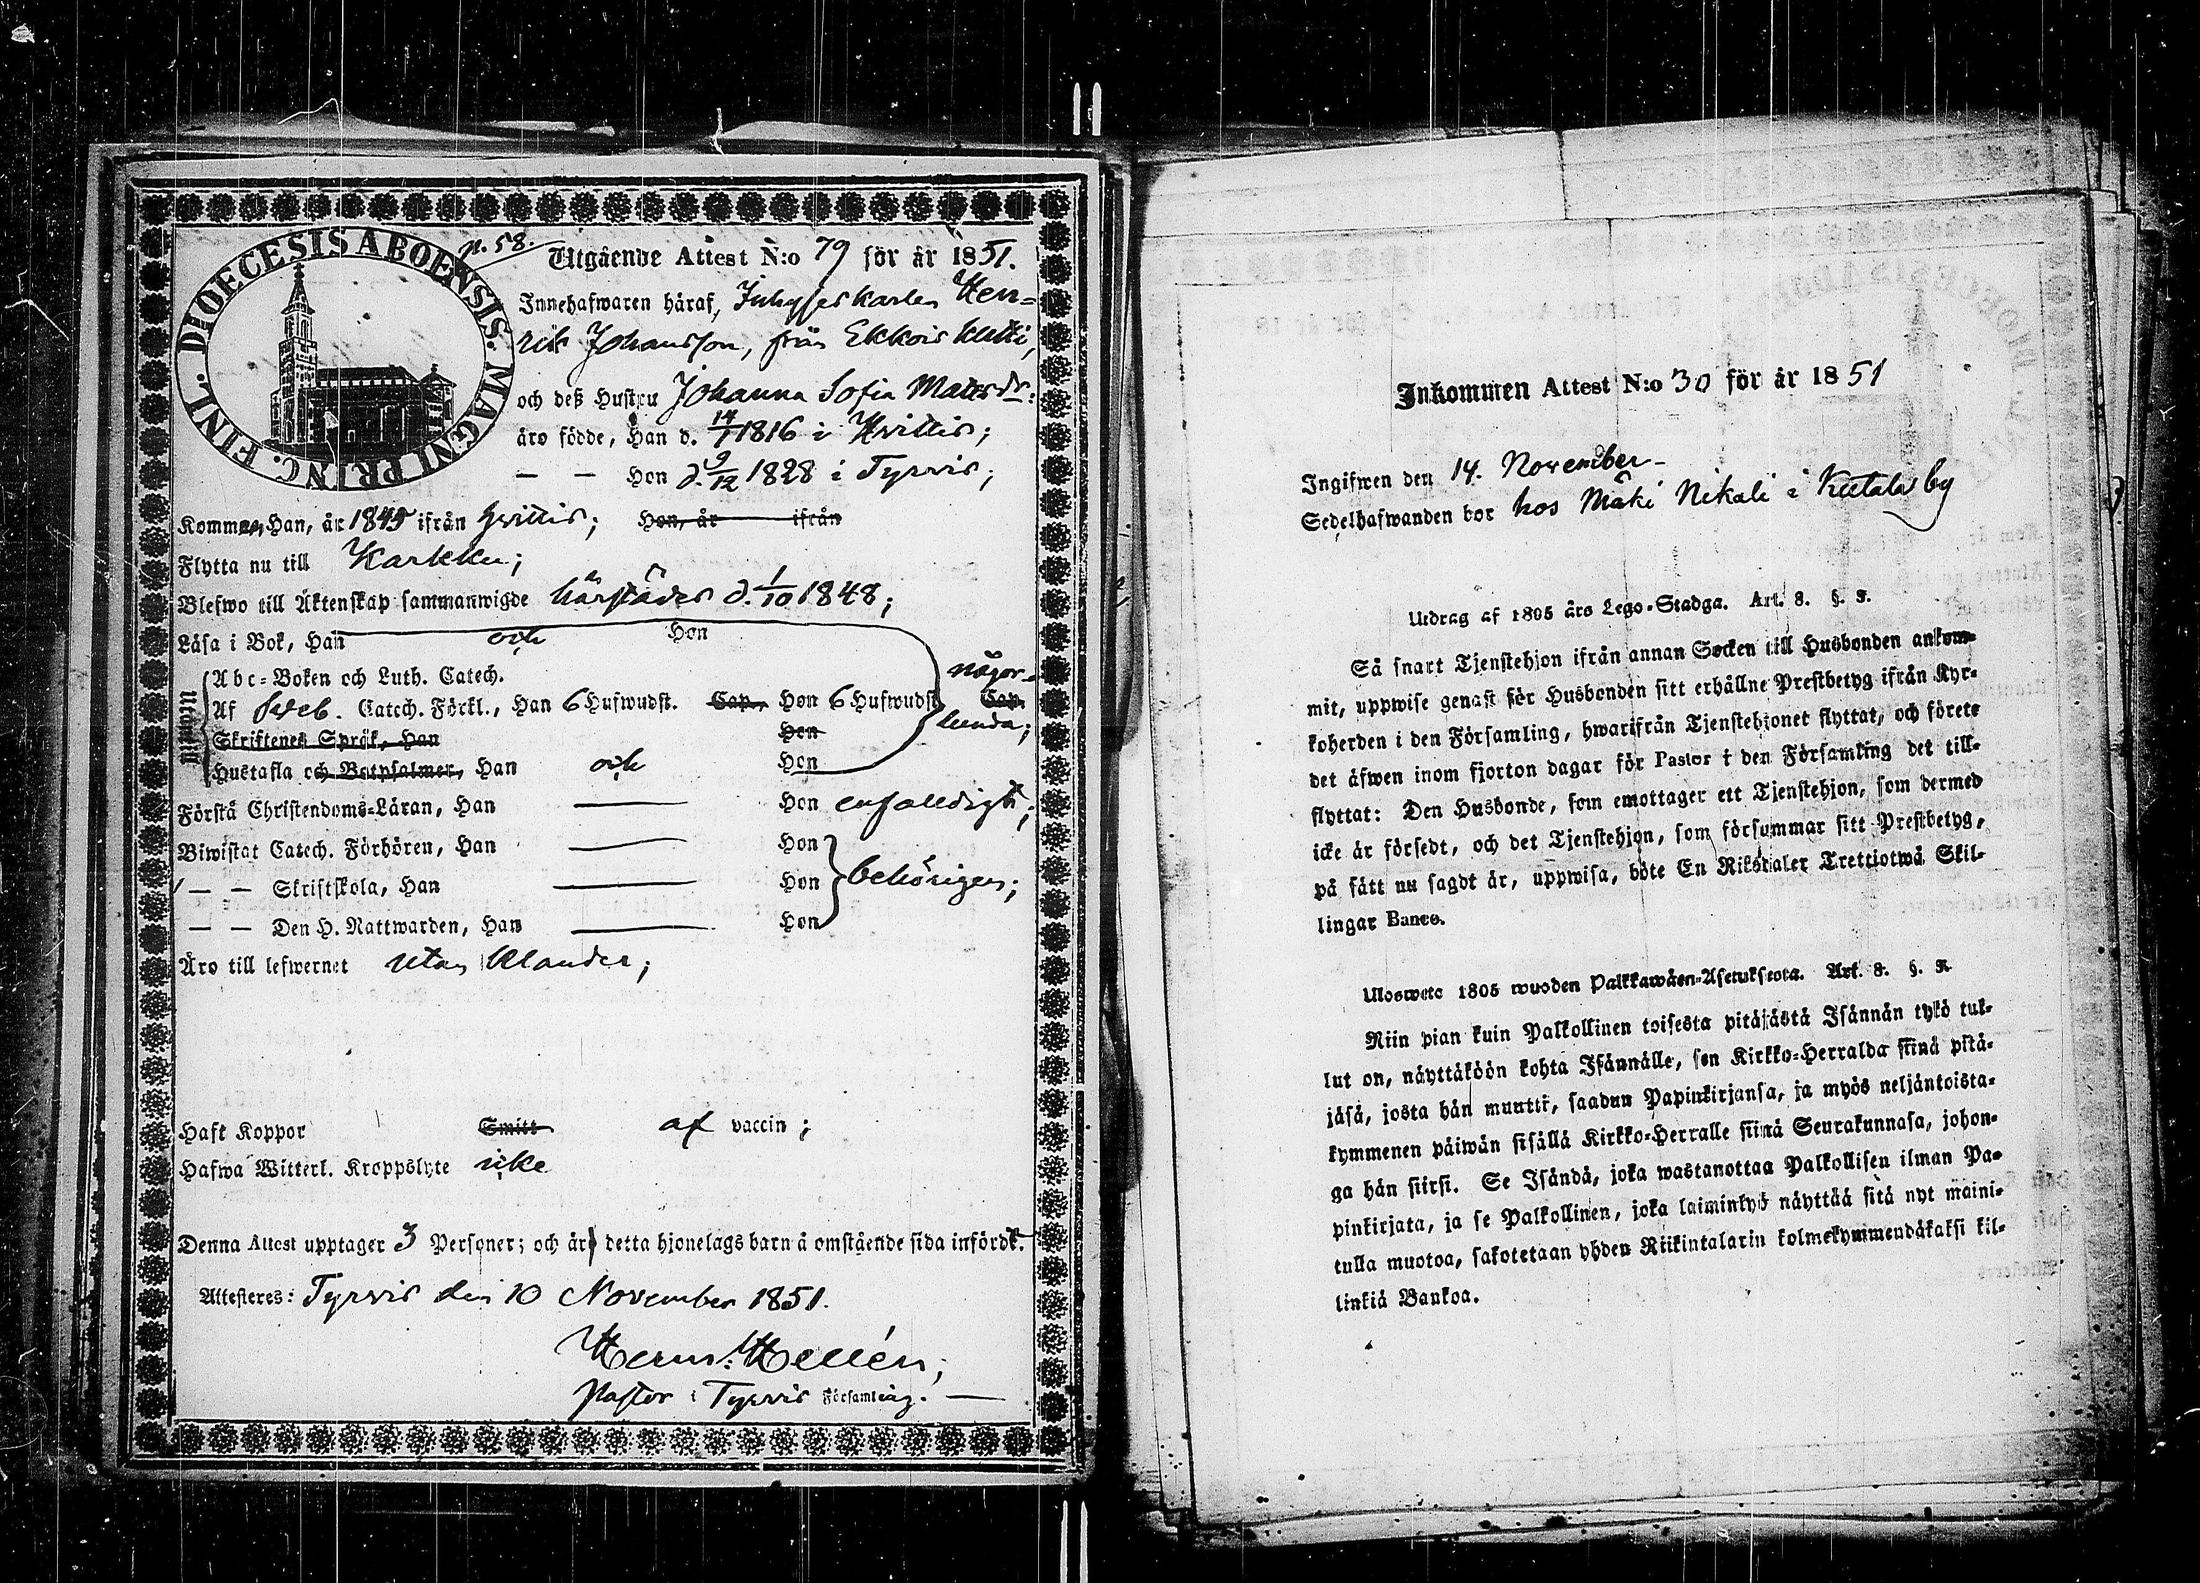 DIOECESIS ABOENSIS. MAGNI PRINC. FINL.
p. 58.
Utgående Attest N:o 79 för år 1851.
Innehafwaren häraf, Inhyseskarlen Hen=
rik Johansson, från Ekkois Kutti,
och deß Hustru Johanna Sofia Matsdr:
äro födde, Han d. 14/1 1816 i Hvittis;
— — Hon d. 9/12 1828 i Tyrvis;
Kommen, Han, år 1845 ifrån Hvittis; Hon, år ifrån
Flytta nu till Karkku;
Blefwo till Äktenskap sammanwigde härstädes d. 1/10 1848;
Läsa i Bok, Han och Hon
Utan
Abc-Boken och Luth. Catech.
Af Sveb. Catech. Förkl., Han 6 Hufwudst. Cap., Hon 6 Hufwudst. Cap.
någor-
lunda;
Skriftenes Språk, Han Hon
Hustafla och Botpsalmer, Han och Hon
Förstå Christendoms-Läran, Han — Hon enfaldigt;
Biwistat Catech. Förhören, Han — Hon
— — Skriftskola, Han — Hon behörigen;
— — Den H. Nattwarden, Han — Hon
Äro till lefwernet utan klander;
Haft Koppor Smitt af vaccin;
Hafwa Witterl. Kroppslyte icke
Denna Attest upptager 3 Personer; och är detta hjonelags barn å omstående sida infördt.
Attesteres: Tyrvis den 10 November 1851.
Herm: Hellén,
Pastor i Tyrvis Församling. —
Inkommen Attest N:o 30 för år 1851
Ingifwen den 14. November
Sedelhafwanden bor hos Mäki Nikali i Kutala by
Utdrag af 1805 års Lego-Stadga. Art. 8. §. 3.
Så snart Tjenstehjon ifrån annan Socken till Husbonden ankom-
mit, uppwise genast för Husbonden sitt erhållne Prestbetyg ifrån Kyr-
koherden i den Församling, hwarifrån Tjenstehjonet flyttat, och förete
det äfwen inom fjorton dagar för Pastor i den Församling det till-
flyttat: Den Husbonde, som emottager ett Tjenstehjon, som dermed
icke är försedt, och det Tjenstehjon, som försummar sitt Prestbetyg,
på sätt nu sagdt är, uppwisa, böte En Riksdaler Trettiotwå Skil-
lingar Banco.
Ulosweto 1805 wuoden Palkkawäen-Asetuksesta. Art. 8. §. 3.
Niin pian kuin Palkollinen toisesta pitäjästä Isännän tykö tul-
lut on, näyttäköön kohta Isännälle, sen Kirkko-Herralda siinä pitä-
jäsä, josta hän muutti, saadun Papinkirjansa, ja myös neljäntoista-
kymmenen päiwän sisällä Kirkko-Herralle siinä Seurakunnasa, johon-
ga hän siirsi. Se Isändä, joka wastanottaa Palkollisen ilman Pa-
pinkirjata, ja se Palkollinen, joka laiminlyö näyttää sitä nyt maini-
tulla muotoa, sakotetaan yhden Riikintalarin kolmekymmendäkaksi kil-
linkiä Bankoa.